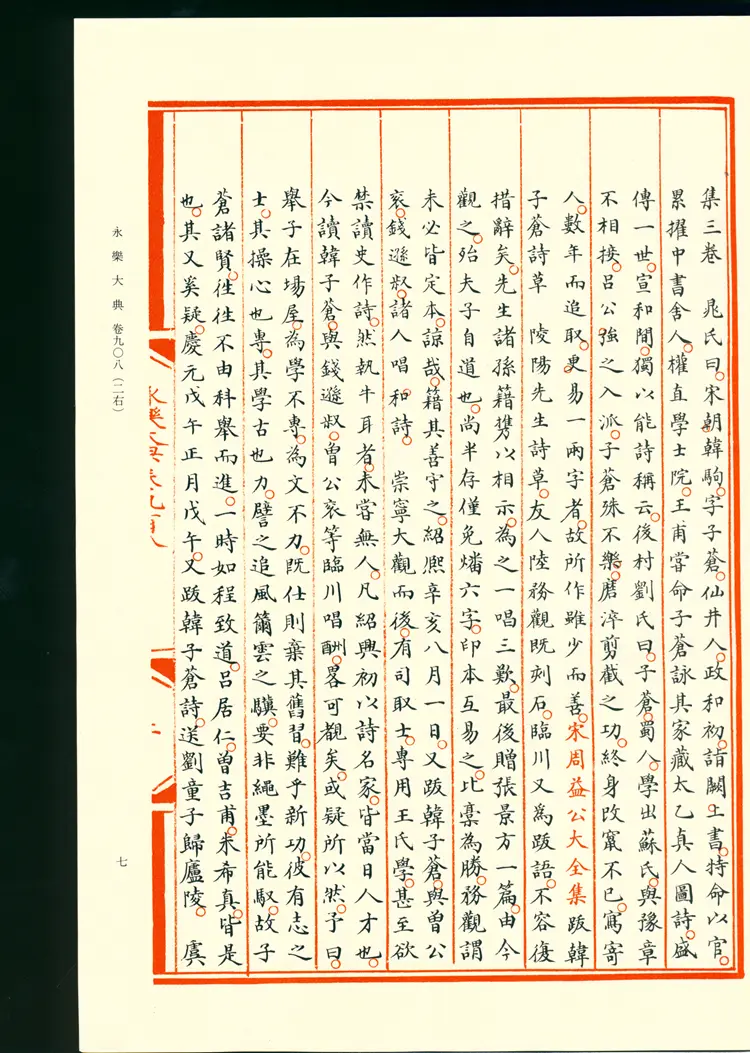 集三卷　晁氏曰。宋朝韓駒。字子蒼。仙井人。政和初。詣闕上書。特命以官。
累擢中書舍人。權直學士院。王甫嘗命子蒼詠其家藏太乙真人圖詩。盛
傳一世。宣和間。獨以能詩稱云。後村劉氏曰。子蒼。蜀人。學出蘇氏。與豫章
不相接。呂公強之入派。子蒼殊不樂。磨淬剪截之功。終身改竄不已。寫寄
人。數年而追取。更易一兩字者。故所作雖少而善。宋周益公大全集跋韓
子蒼詩草　陵陽先生詩草。友人陸務觀既刻石。臨川又為跋語。不容復
措辭矣。先生諸孫籍攜以相示。為之一唱三歎。最後贈張景方一篇。由今
觀之。殆夫子自道也。尚半存僅免燔六字。印本互易之。此稾為勝。務觀謂
未必皆定本。諒哉。籍其善守之。紹熙辛亥八月一日。又跋韓子蒼。與曾公
袞。錢遜叔。諸人唱和詩　崇寧大觀而後。有司取士。專用王氏學。甚至欲
禁讀史作詩。然執牛耳者。未嘗無人。凡紹興初以詩名家。皆當日人才也。
今讀韓子蒼。與錢遜叔。曾公袞等臨川唱酬。畧可覩矣。或疑所以然。予曰。
舉子在場屋。為學不專。為文不力。既仕則棄其舊習。難乎新功。彼有志之
士。其操心也專。其學古也力。譬之追風籋雲之驥。要非繩墨所能馭。故子
蒼諸賢。往往不由科舉而進。一時如程致道。呂居仁。曾吉甫。朱希真。皆是
也。其又奚疑。慶元戊午正月戊午。又跋韓子蒼詩。送劉童子歸廬陵。　虞
永樂大典卷九百八
永樂大典 卷九〇八（二右）
七